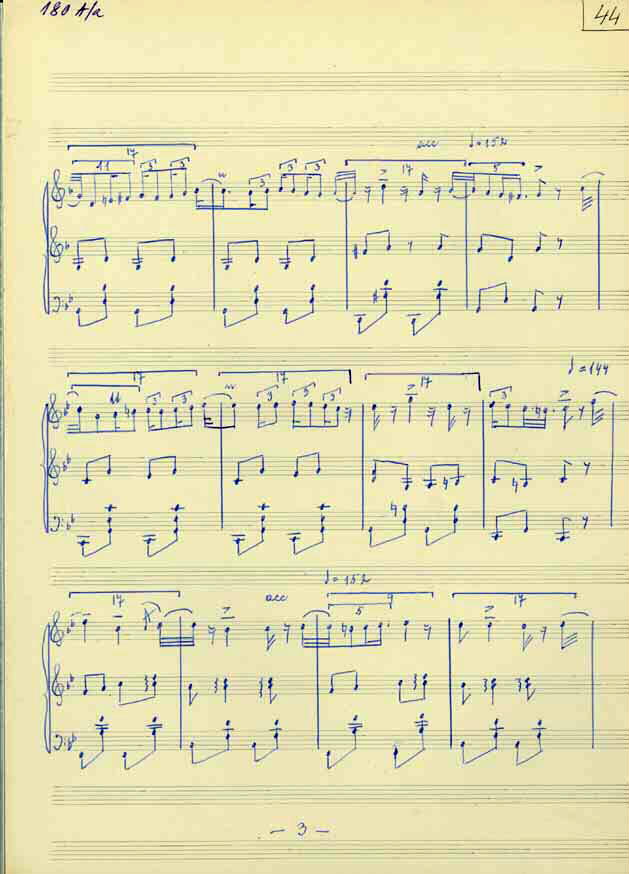 180 A/a
44
17
11 3 3
3 3 3
acc ♩=152
17
5
17
11 3 3
17
3 3 3
17
♩=144
3
17
acc ♩=152
5 9
17
- 3 -